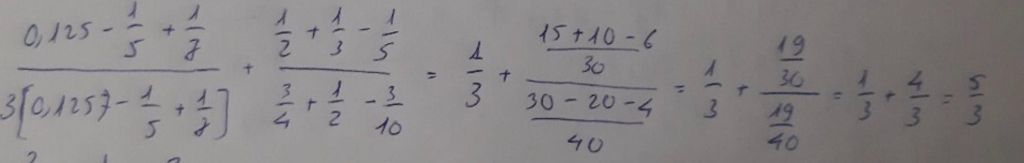 \frac{0,125 - \frac{1}{5} + \frac{1}{7}}{3[0,125) - \frac{1}{5} + \frac{1}{7}]} + \frac{\frac{1}{2} + \frac{1}{3} - \frac{1}{5}}{\frac{3}{4} + \frac{1}{2} - \frac{3}{10}} = \frac{1}{3} + \frac{\frac{15+10-6}{30}}{\frac{30-20-4}{40}} = \frac{1}{3} + \frac{\frac{19}{30}}{\frac{19}{40}} = \frac{1}{3} + \frac{4}{3} = \frac{5}{3}